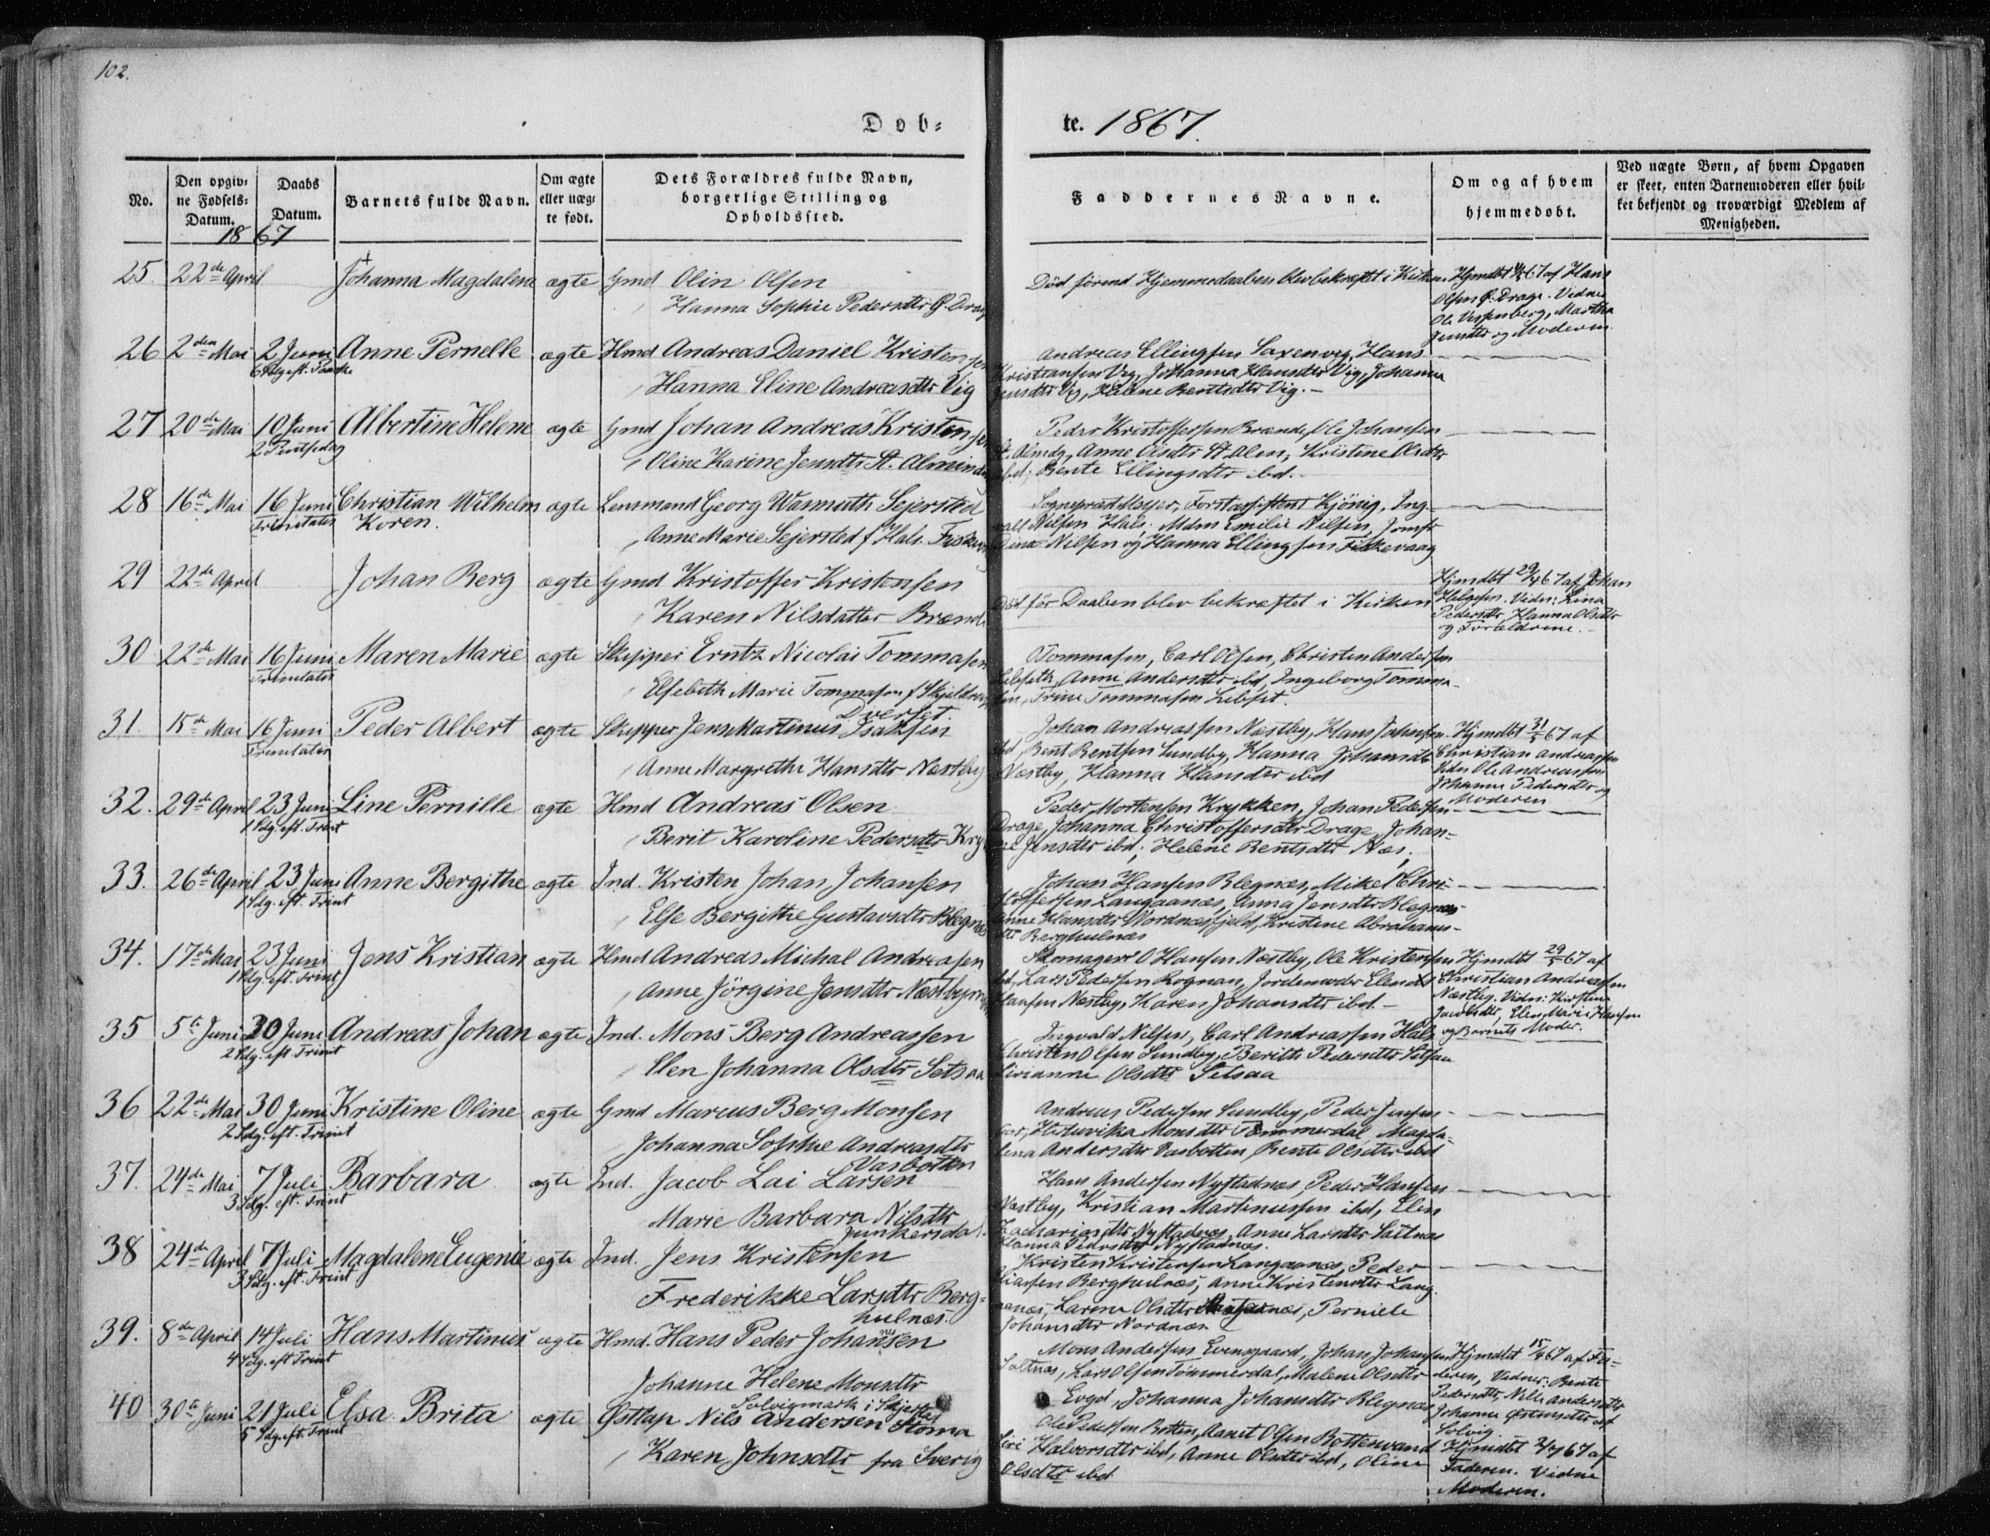 102.
Døb-
te. 1867.
No.
Den opgiv-
ne Fødsels-
Datum.
Daabs
Datum.
Barnets fulde Navn.
Om ægte
eller uæg-
te født.
Dets Forældres fulde Navn,
borgerlige Stilling og
Opholdssted.
Faddernes Navne.
Om og af hvem
hjemmedøbt.
Ved uægte Børn, af hvem Opgaven
er skeet, enten Barnemoderen eller hvil-
ket bekjendt og troværdigt Medlem af
Menigheden.
1867
25. 22de April Johanna Magdalena ægte Gmd Olin Olsen
Hanna Sophie Pedersdtr Ø. Drag
Død førend Hjemmedaaben blev bekræftet i Kirken
Hjmdbt 67 af Hans
Olsen Ø. Drage. Vidne
Ole, Martha
Jensdtr og Moderen
26 2den Mai 2 Juni Anne Pernelle ægte Hmd Andreas Daniel Kristensen
6 Sdg eft. Paaske
Hanna Eline Andreasdtr Vig
Andreas Ellingsen Saxenvig, Hans
Kristiansen Vig, Johanna Hansdtr Vig, Johanna
Jensdtr Vig, Helene Bentsdtr Vig.
27 20de Mai 10 Juni Albertine Helene ægte Gmd Johan Andreas Kristensen
2 Pintsedag
Oline Karine Jensdtr St. Alminde
Peder Kristoffersen Brænde, Ole Johansen
St. Almdg, Anne Olsdtr St Alm, Kristine Olsdtr
ibd; Bente Ellingsdtr ibd.
28 16de Mai 16 Juni Christian Wilhelm ægte Lensmand Georg Wasmuth Sejersted
Trinitatis Koren.
Anne Marie Sejersted f. Hals. Fiskvaag
Sogneprest Meyer, Forstassistent Kjönig, Ing-
vall Nilsen Hals; Mdm Emilie Nilsen, Jomfr
Dina Nilsen og Hanna Ellingsen Fiskevaag
29 22de April Johan Berg ægte Gmd Kristoffer Kristensen
Karen Nilsdatter Brænde
Død før Daaben blev bekræftet i Kirken
Hjmdbt 29/4 67 af Johan
Helgesen. Vidn: Lina
Pedersdtr Hanna Olsdtr
og Forældrene.
30 22de Mai 16 Juni Maren Marie ægte Skipper Erntz Nicolai Tommasen
Trinitatis
Elsebeth Marie Tommasen f. Skjeldrup
Dverset.
O Tommasen, Carl Olsen, Christen Andersen
Anne Andersdtr ibd, Ingeborg Tomma-
sen, Trine Tommasen
31. 15de Mai 16 Juni Peder Albert ægte Skipper Jens Martinus Isaksen
Trinitatis
Anne Margrethe Hansdtr Næstby
Johan Andreassen Næstby, Hans Johansen
ibd, Bent Bentsen Sundby, Hanna Johansdtr
Næstby, Hanna Hansdtr ibd
Hjmdbt 31/5 67 af
Christian Andreassen
Vidn Ole Andreassen
Johanne Pedersdtr og
Moderen
32. 29de April 23 Juni Line Pernille ægte Hmd Andreas Olsen
1 Sdg. eft. Trint
Berit Karoline Pedersdtr Kryk
Peder Mortensen Krykken, Johan Pedersen
Drage, Johanna Christoffersdtr Drage, Johan-
ne Jensdtr ibd; Helene Bentsdtr Næs.
33. 26de April 23 Juni Anne Bergithe ægte Ind. Kristen Johan Johansen
1 Sdg. eft. Trint
Else Bergithe Gustavsdtr Blegnæs
Johan Hansen Blegnæs, Mikel Chri-
stoffersen Langaanæs, Anna Jensdtr Blegnæs
Anne Hansdtr Nordnæsfjeld, Kristine Abrahams-
dtr Berghulnæs
34. 17de Mai 23 Juni Jens Kristian ægte Hmd Andreas Michal Andreasen
1 Sdg. eft. Trint
Anne Jörgine Jensdtr Næstbym
Skomager O Hansen Næstby, Ole Kristensen
ibd, Lars Pedersen Rognan, Jordemoder Elen
Hansen Næstby, Karen Johansdtr ibd.
Hjmdbt 29/5 67 af
Christian Andreassen
Næstby. Vidn: Kirstina
Jacobsdtr, Elen Marie Hansen
og Barnets Moder.
35 5te Juni 30 Juni Andreas Johan ægte Ind. Mons Berg Andreassen
2 Sdg. eft Trint
Elen Johanna Olsdtr Setsaa
Ingvald Nilsen, Carl Andreassen Hals
Christen Olsen Sundby, Berith Pedersdtr Setsaa
Sirianne Olsdtr Setsaa
36 22de Mai 30 Juni Kristine Oline ægte Gmd Marius Berg Monsen
2 Sdg. eft. Trint
Johanna Sophie Andreasdtr
Vasbotten
Andreas Pedersen Sundby, Peder Jensen
Monsdtr Tømmerdal, Magda-
lena Andersdtr Vasbotten, Bente Olsdtr ibd
37. 24de Mai 7 Juli Barbara ægte Ind. Jacob Lai Larsen
3 Sdg. eft. Trint
Marie Barbara Nilsdtr
Junkersdal
Hans Andersen Nystadnæs, Peder Hansen
Næstby, Kristian Martinussen ibd, Elen
Zachariasdtr Nystadnæs, Anne Larsdtr Saltnæs
Hanna Pedersdtr Nystadnæs.
38 24de April 7 Juli Magdalene Eugenie ægte Ind. Jens Kristensen
3 Sdg. eft. Trint
Frederikke Larsdtr Berg-
hulnæs.
Kristen Kristensen Langaanæs, Peder
Berghulnæs, Anne Kristensdtr Lang-
aanæs, Larine Olsdtr, Pernele
Johansdtr Nordnæs
39. 8de April 14 Juli Hans Martinus ægte Hmd. Hans Peder Johansen
4 Sdg. eft Trint
Johanne Helene Monsdtr
Solvigmark i Skjerstad
Mons Andersen Evensgaard, Johan Johansen
Saltnæs, Lars Olsen Tømmerdal, Malene Olsdtr
Evgd, Johanna Johansdtr Blegnæs
Hjmdbt 15/4 67 af Fa-
deren, Vidner: Bente
Pedersdtr, Nils Andersdtr
Johanne
Solvig
40 30te Juni 21 Juli Elsa Brita ægte Østlap Nils Andersen Stoma
5 Sdg. eft. Trint
Karen Johnsdtr fra Sverig
Ole Pedersen Botten, Aanet Olsen Bottenvand
Siri Halvorsdtr ibd, Anne Olsdtr ibd, Oline
Olsdtr ibd
Hjmdbt 2/7 67 af
Faderen. Vidne
Moderen.